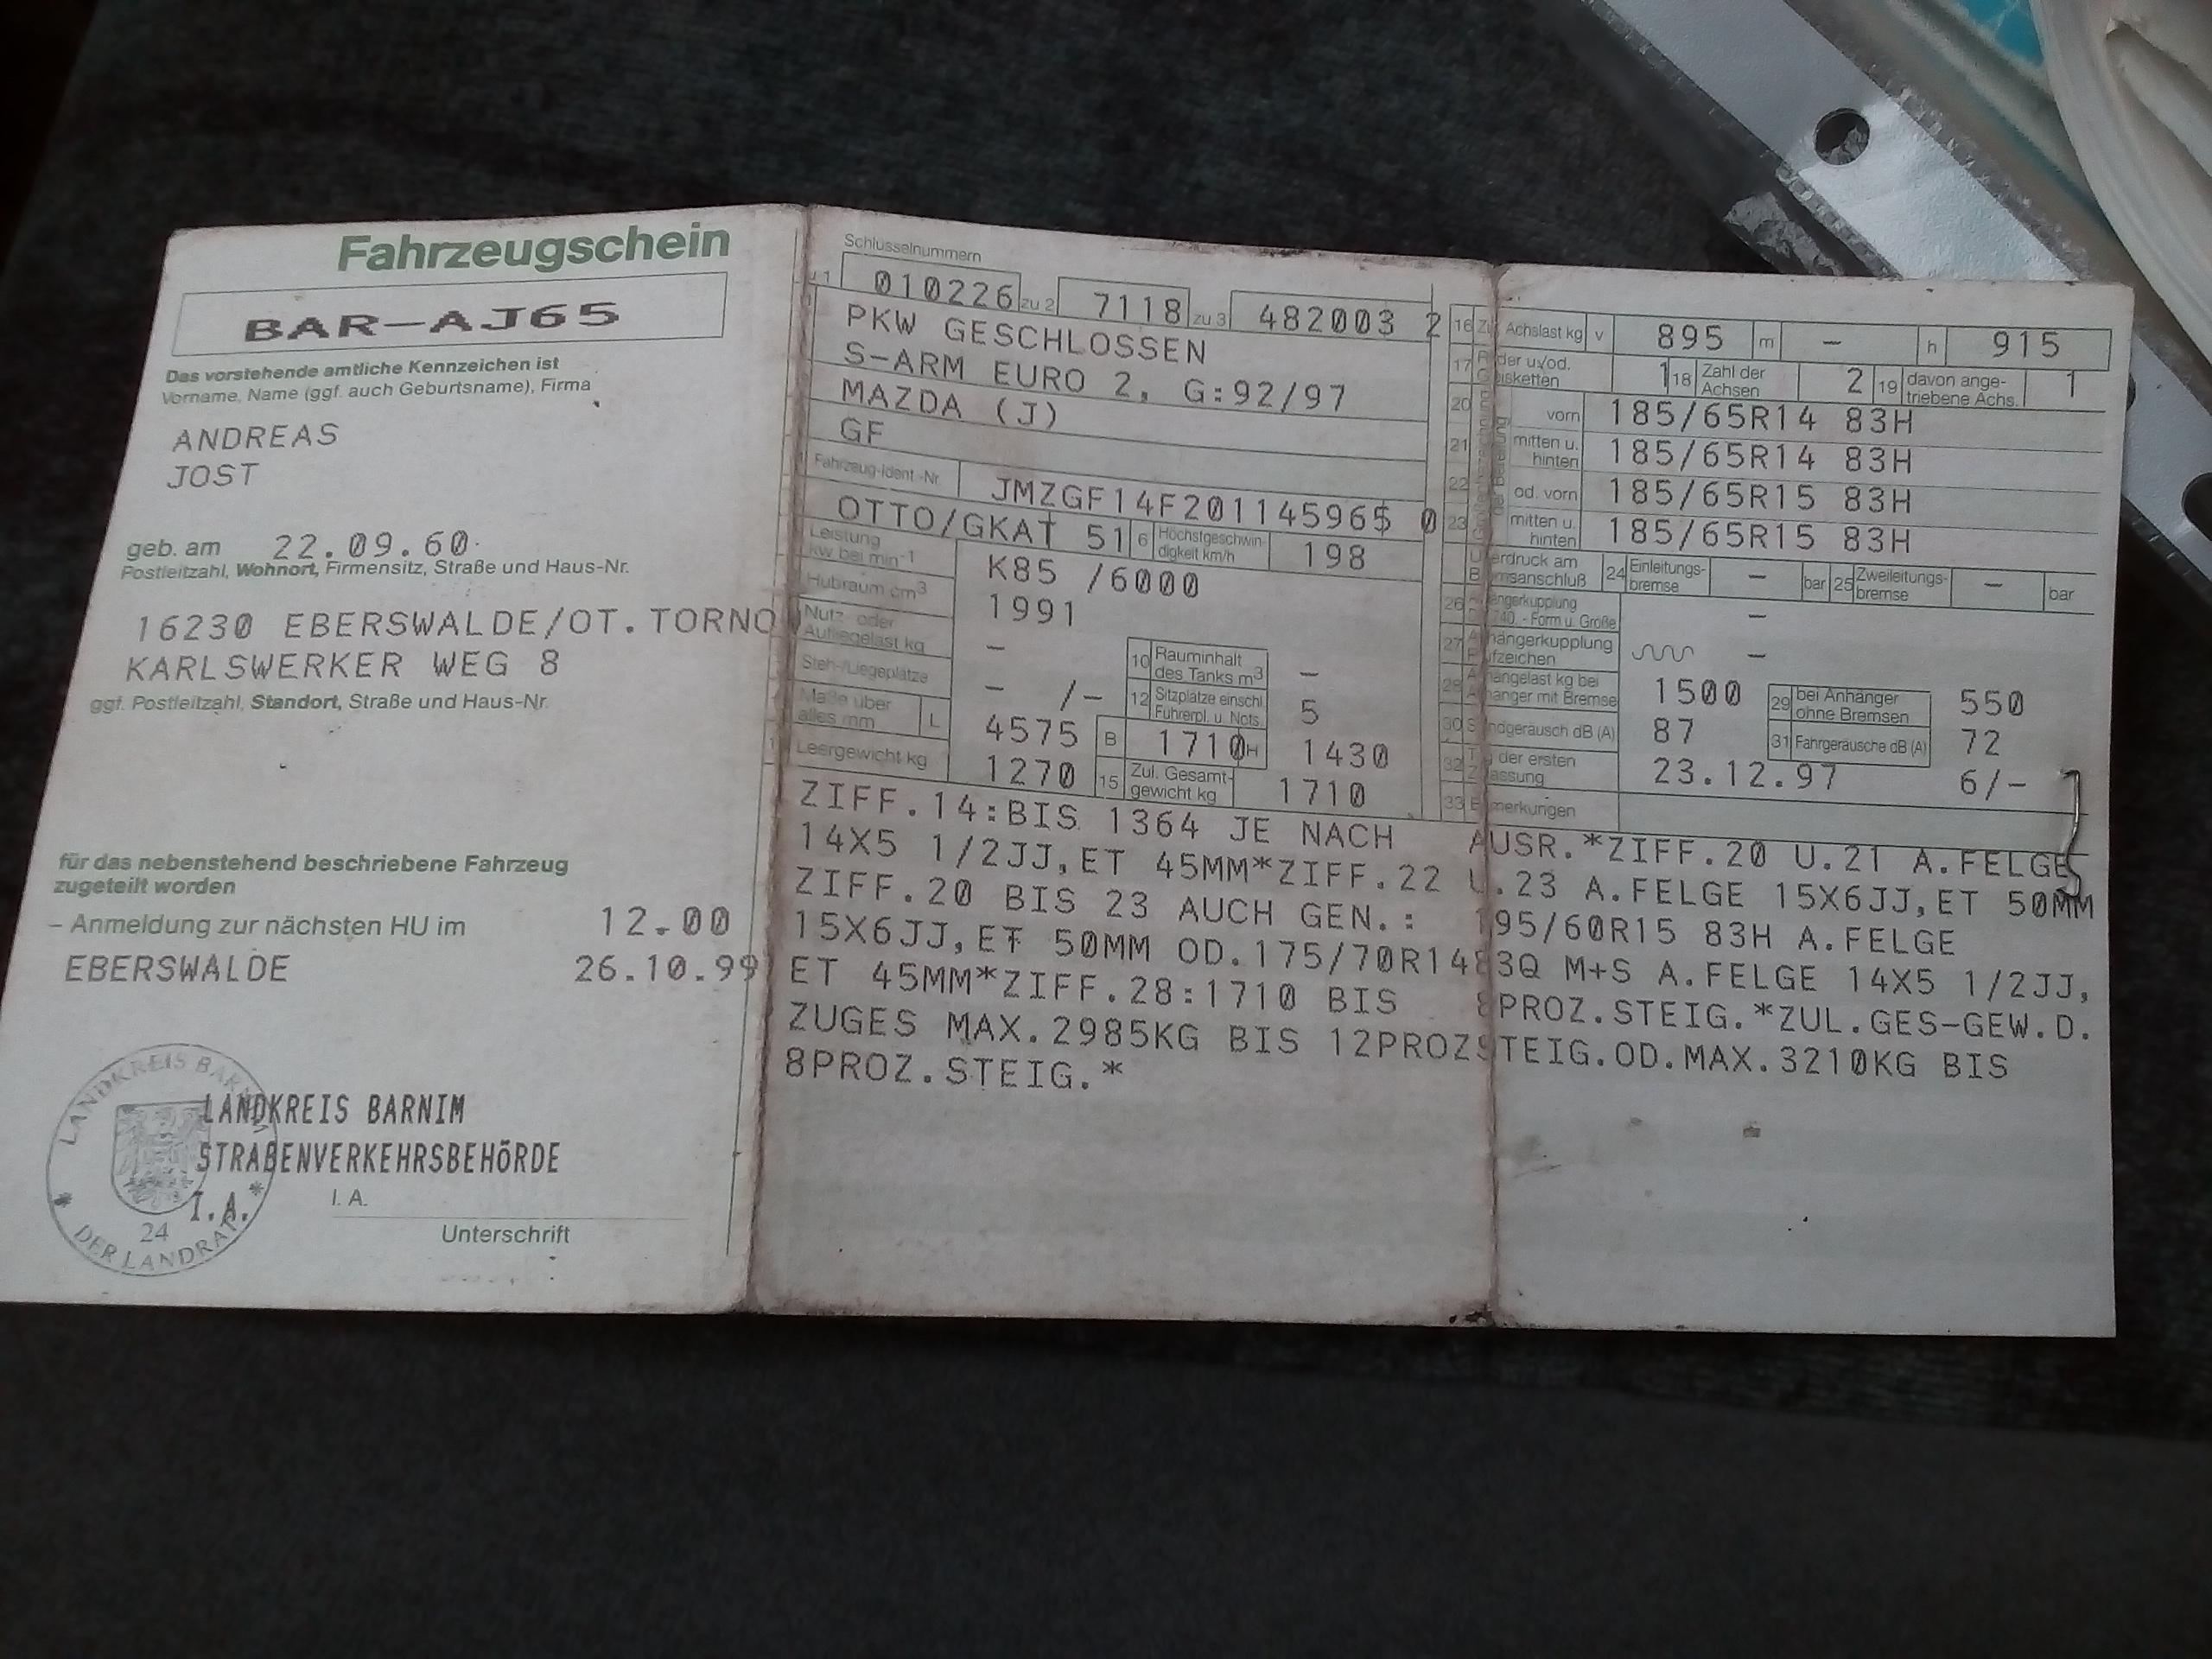 Fahrzeugschein
BAR-AJ65
Das vorstehende amtliche Kennzeichen ist
Vorname, Name (ggf. auch Geburtsname), Firma
ANDREAS
JOST
geb. am 22.09.60
Postleitzahl, Wohnort, Firmensitz, Straße und Haus-Nr.
16230 EBERSWALDE/OT.TORNO
KARLSWERKER WEG 8
ggf. Postleitzahl, Standort, Straße und Haus-Nr.
für das nebenstehend beschriebene Fahrzeug
zugeteilt worden
– Anmeldung zur nächsten HU im 12.00
EBERSWALDE 26.10.99
LANDKREIS BARNIM
STRAßENVERKEHRSBEHÖRDE
I.A.
I. A.
Unterschrift
LANDKREIS BARNIM
24
DER LANDRAT
Schlüsselnummern
1 010226 zu 2 7118 zu 3 482003 2
PKW GESCHLOSSEN
S-ARM EURO 2, G:92/97
MAZDA (J)
GF
Fahrzeug-Ident.-Nr. JMZGF14F201145965 0
OTTO/GKAT 51 6 Höchstgeschwin-
digkeit km/h 198
Leistung
kW bei min-1 K85 /6000
Hubraum cm3 1991
Nutz- oder
Aufliegelast kg - 10 Rauminhalt
des Tanks m3 -
Steh-/Liegeplätze - /- 12 Sitzplätze einschl.
Führerpl. u. Nots. 5
Maße über
alles mm L 4575 B 1710 H 1430
Leergewicht kg 1270 15 Zul. Gesamt-
gewicht kg 1710
16 Achslast kg v 895 m - h 915
17 1 18 Zahl der
Achsen 2 19 davon ange-
triebene Achs. 1
20 vorn 185/65R14 83H
21 mitten u.
hinten 185/65R14 83H
22 od. vorn 185/65R15 83H
23 mitten u.
hinten 185/65R15 83H
24 Einleitungs-
bremse - bar 25 Zweileitungs-
bremse - bar
26 -
27 -
28 1500 29 bei Anhänger
ohne Bremsen 550
30 dB (A) 87 31 Fahrgeräusche dB (A) 72
32 der ersten 23.12.97 6/-
33
ZIFF.14:BIS 1364 JE NACH AUSR.*ZIFF.20 U.21 A.FELGE
14X5 1/2JJ,ET 45MM*ZIFF.22 U.23 A.FELGE 15X6JJ,ET 50MM
ZIFF.20 BIS 23 AUCH GEN.: 195/60R15 83H A.FELGE
15X6JJ,ET 50MM OD.175/70R14 83Q M+S A.FELGE 14X5 1/2JJ,
ET 45MM*ZIFF.28:1710 BIS 8PROZ.STEIG.*ZUL.GES-GEW.D.
ZUGES MAX.2985KG BIS 12PROZSTEIG.OD.MAX.3210KG BIS
8PROZ.STEIG.*